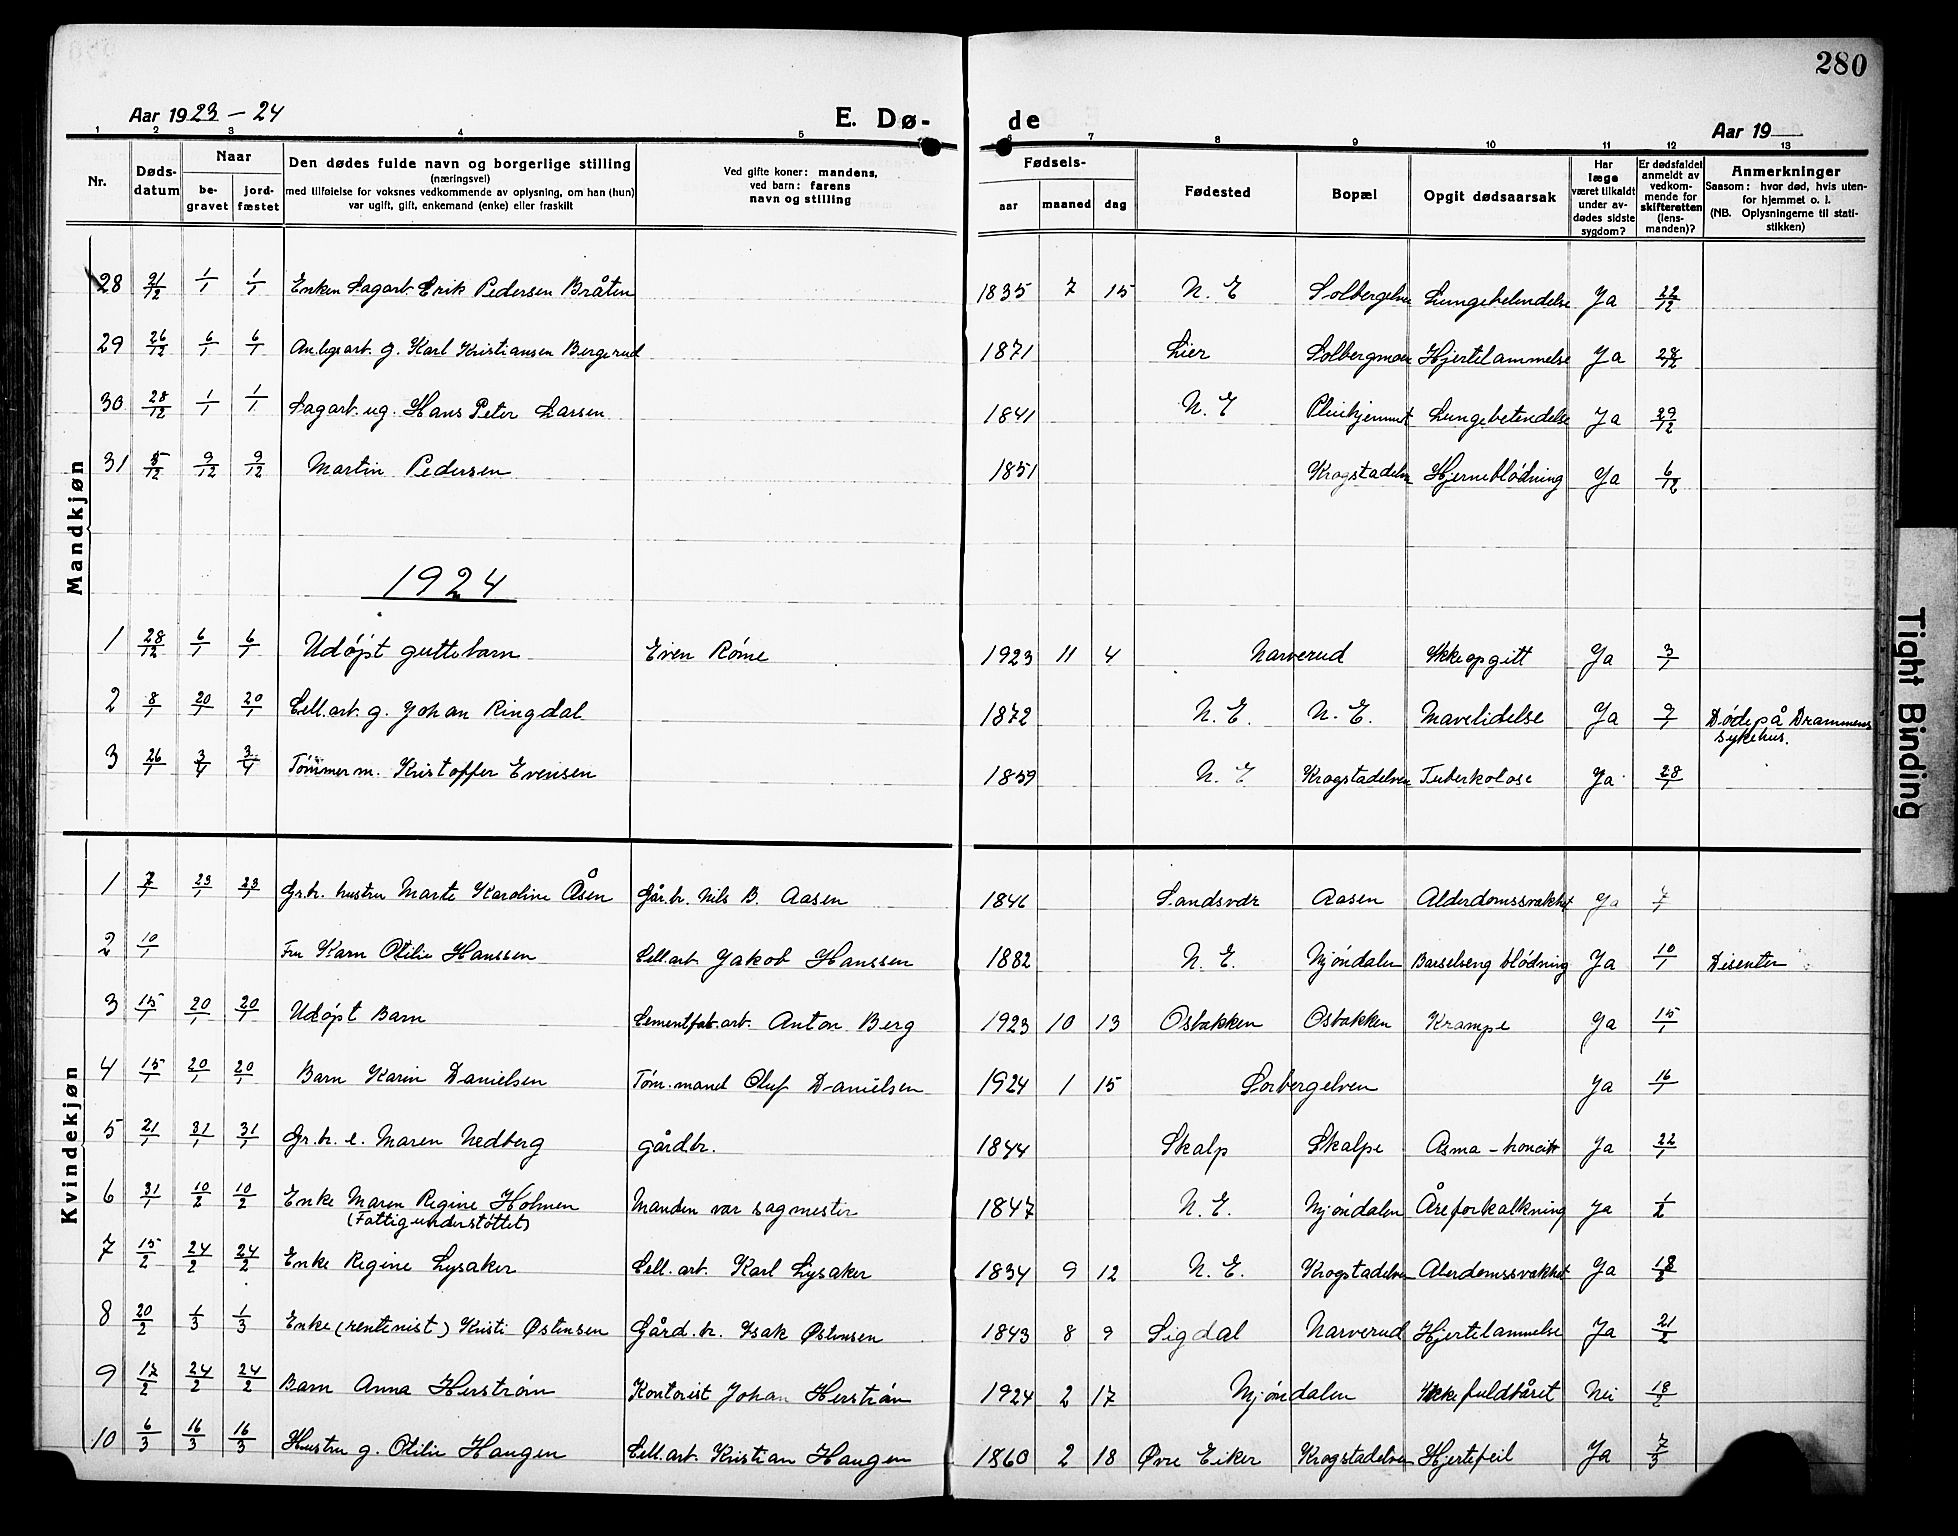 280
Aar 1923 – 24 E. Dø- de Aar 19
1 2 3 4 5 6 7 8 9 10 11 12 13
Nr. Døds-datum Naar be-gravet jord-fæstet Den dødes fulde navn og borgerlige stilling (næringsvei) med tilføielse for voksnes vedkommende av oplysning, om han (hun) var ugift, gift, enkemand (enke) eller fraskilt Ved gifte koner: mandens, ved barn: farens navn og stilling Fødsels- aar maaned dag Fødested Bopæl Opgit dødsaarsak Har læge været tilkaldt under av-dødes sidste sygdom? Er dødsfaldet anmeldt av vedkom-mende for skifteretten (lens-manden)? Anmerkninger Saasom: hvor død, hvis uten-for hjemmet o. l. (NB. Oplysningerne til stati-stikken)
Mandkjøn
28 21/12 1/1 1/1 Enkem Sagarb. Erik Pedersen Bråten 1835 7 15 N. E Solbergelven Lungebetendelse Ja 22/12
29 26/12 6/1 6/1 Anlegsarb. g. Karl Kristiansen Bergerud 1871 Lier Solbergmoen Hjertelammelse Ja 28/12
30 28/12 1/1 1/1 Sagarb. ug. Hans Peter Larsen 1841 N. E Lungebetendelse Ja 29/12
31 5/12 9/12 9/12 Martin Pedersen 1851 Krogstadelven Hjerneblödning Ja 6/12
1924
1 28/12 6/1 6/1 Udöjst guttebarn Even Röme 1923 11 4 Narverud Ikke opgitt Ja 3/1
2 8/1 20/1 20/1 Cell. arb. g. Johan Ringdal 1872 N. E. N. E. Mavelidelse Ja 9/1 Döde på Drammens sykehus.
3 26/1 3/4 3/4 Tömmerm. Kristoffer Evensen 1859 N. E Krogstadelven Tuberkolose Ja 28/1
Kvindekjøn
1 7/1 23/1 23/1 Gr.br. hustru Marte Karoline Åsen Går.br. Nils B. Aasen 1846 Sandsvær Aasen Alderdomssvakhet Ja 7/1
2 10/1 Fru Karn Otilie Hanssen Cell.arb. Jakob Hanssen 1882 N. E. Mjöndalen Barselseng blödning Ja 10/1 Disenter
3 15/1 20/1 20/1 Udöpt Barn Cementfab.arb. Anton Berg 1923 10 13 Osbakken Osbakken Krampe Ja 15/1
4 15/1 20/1 20/1 Barn Karin Danielsen Töm.mand Oluf Danielsen 1924 1 15 Sorbergelven Ja 16/1
5 21/1 31/1 31/1 Gr.br. e. Maren Nedberg gårdbr. 1844 Skalp Skalpe Asma – Ja 22/1
6 31/1 10/2 10/2 Enke Maren Regine Holmen (Fattigunderstöttet) Manden var sagmester 1847 N. E. Mjöndalen Åreforkalkning Ja 1/2
7 15/2 24/2 24/2 Enke Regine Lysaker Cell. arb. Karl Lysaker 1834 9 12 N. E. Krogstadelven Alerdomssvakhet Ja 18/2
8 20/2 1/3 1/3 Enke (rentenist) Kristi Östensen Gård. br. Isak Östensen 1843 8 9 Sigdal Narverud Hjertelammelse Ja 21/2
9 17/2 24/2 24/2 Barn Anna Herström Kontorist Johan Herström 1924 2 17 Mjöndalen Ikke fuldbåret Nei 18/2
10 6/3 16/3 16/3 Hustru g. Otilie Haugen Cell.arb. Kristian Haugen 1860 2 18 Øvre Eiker Krogstadelven Hjertefeil Ja 7/3
Tight Binding